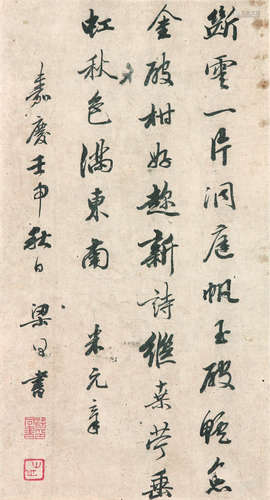 斷雲一片洞庭帆玉破鱸魚
金破柑好趂新詩繼桑苧垂
虹秋色滿東南　米元章
嘉慶壬申秋日梁同書